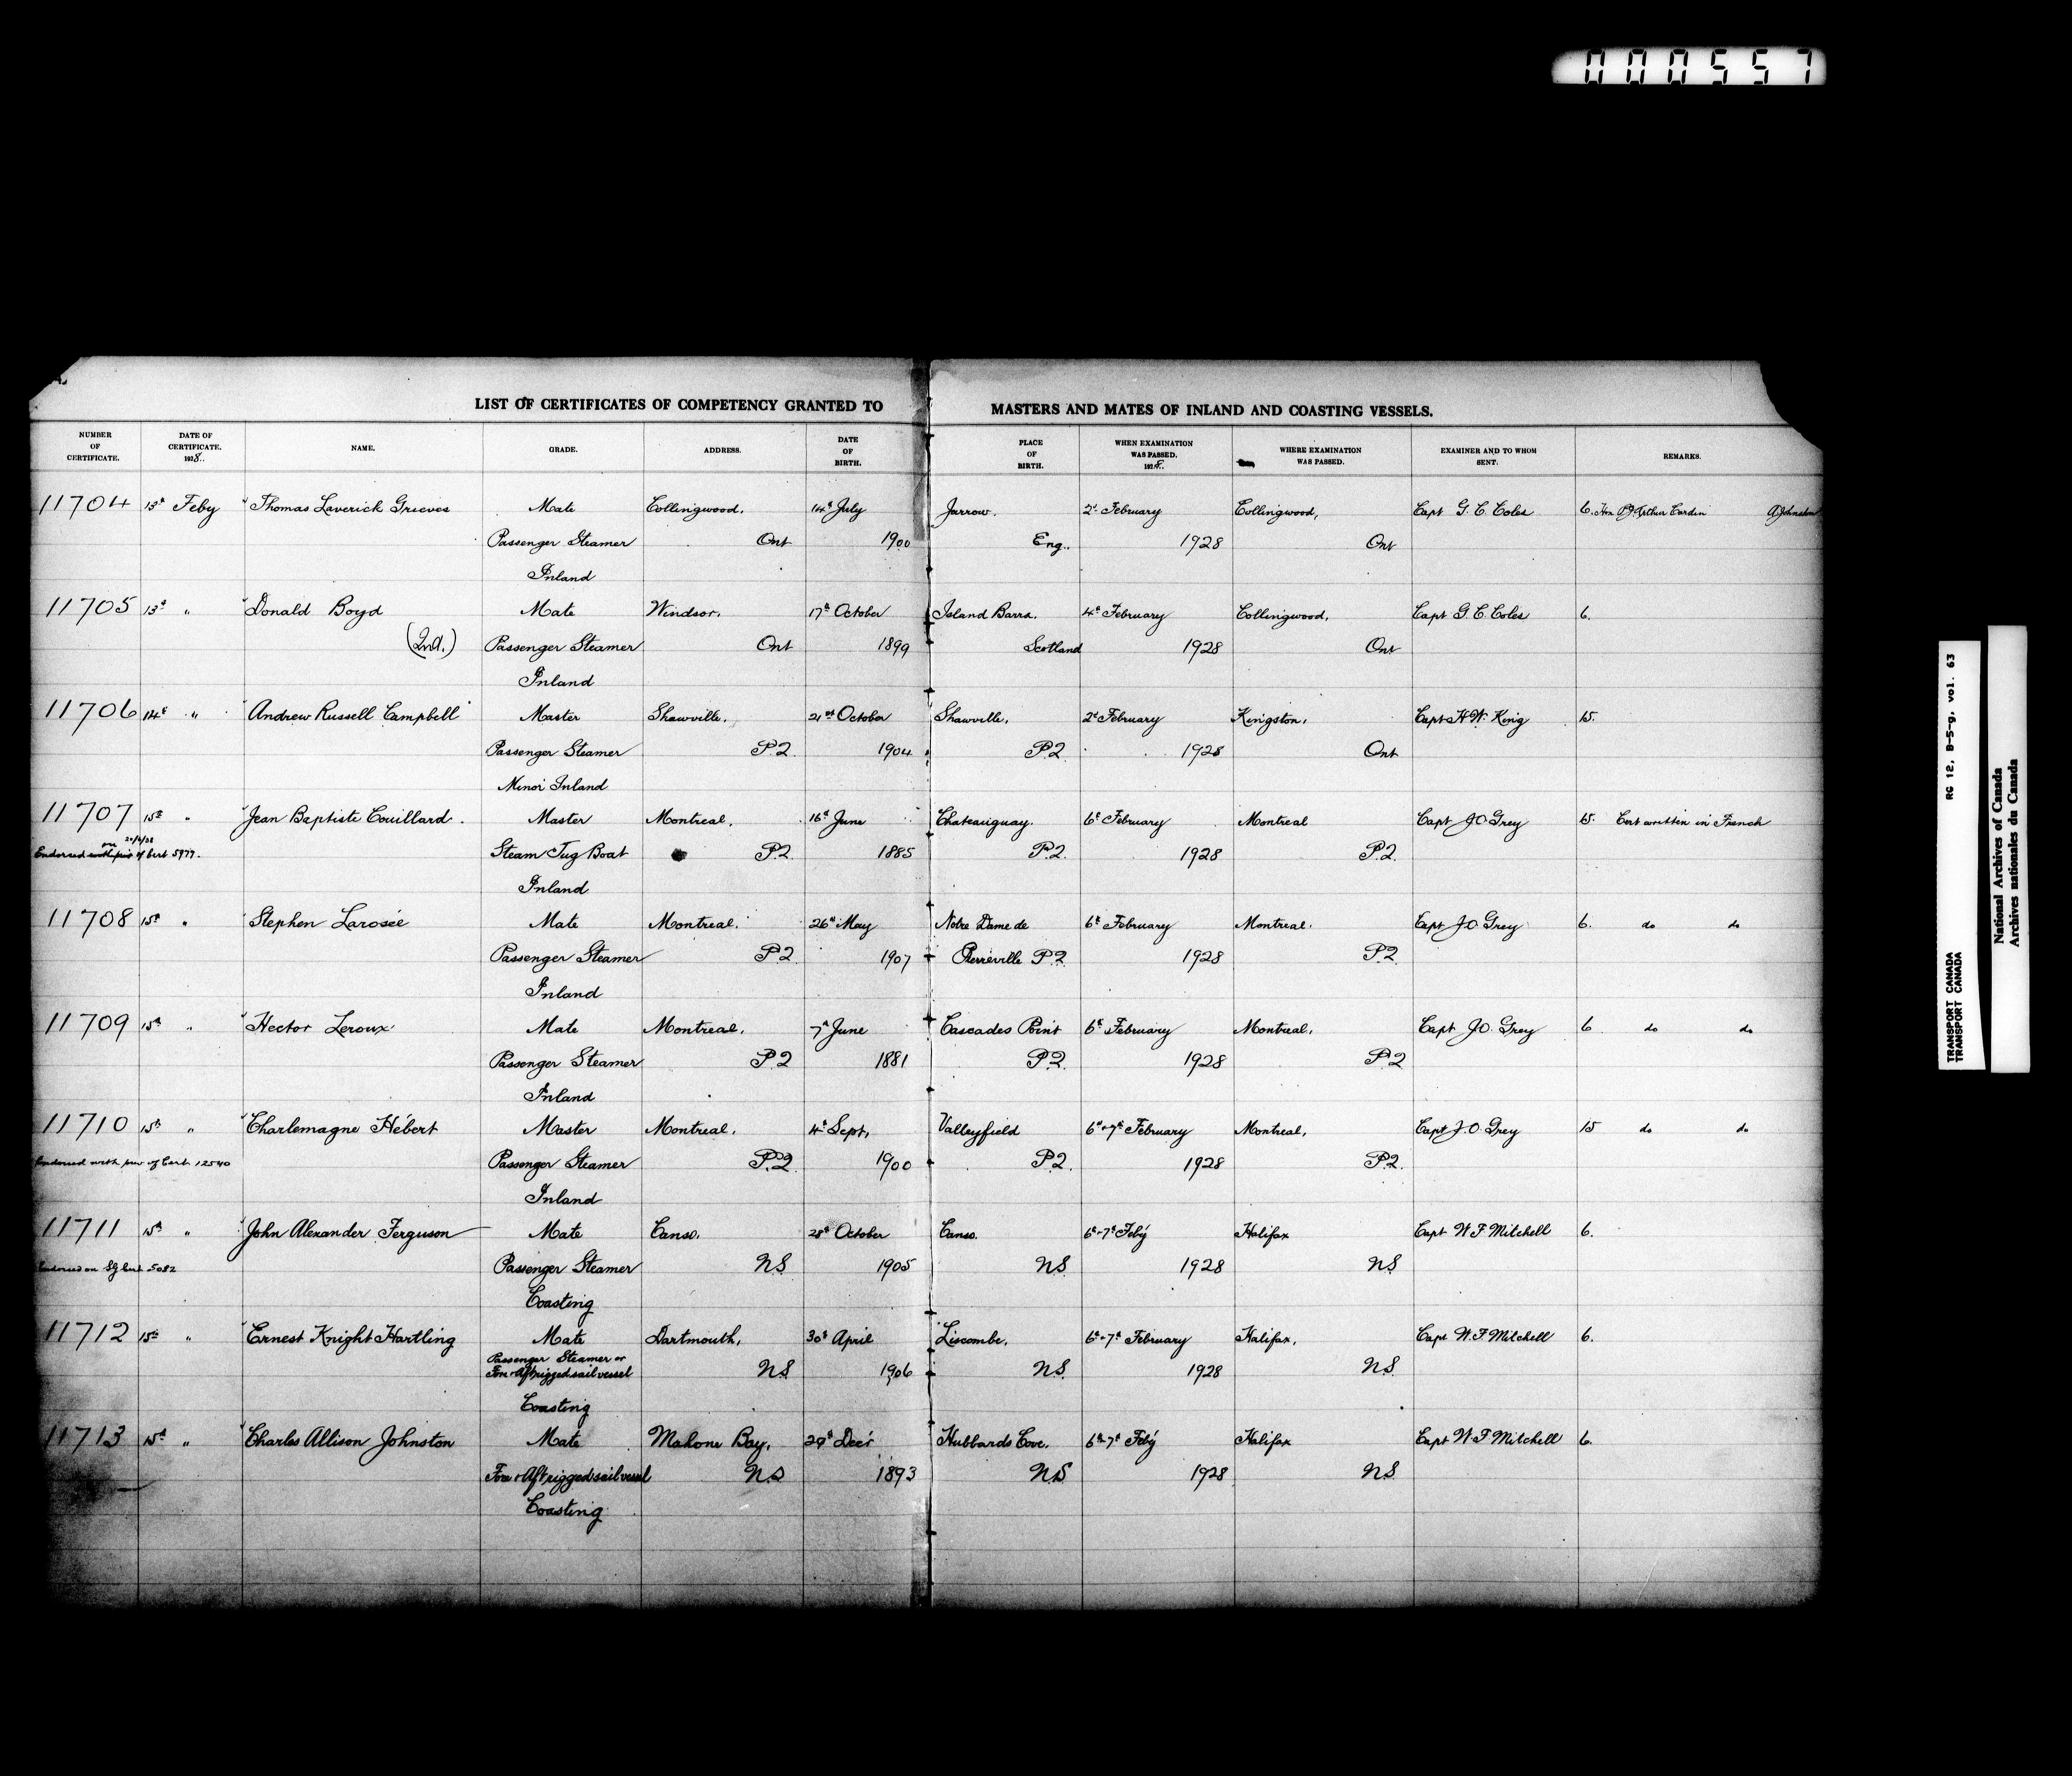 000557
LIST OF CERTIFICATES OF COMPETENCY GRANTED TO MASTERS AND MATES OF INLAND AND COASTING VESSELS.
NUMBER OF CERTIFICATE. DATE OF CERTIFICATE. 1928. NAME. GRADE. ADDRESS. DATE OF BIRTH. PLACE OF BIRTH. WHEN EXAMINATION WAS PASSED. 1928. WHERE EXAMINATION WAS PASSED. EXAMINER AND TO WHOM SENT. REMARKS.
11704 13th Feby Thomas Laverick Grieves Mate Collingwood, 14th July Jarrow. 2d February Collingwood, Capt G. C. Coles 6. Hon P.J. Arthur Cardin A Johnston
Passenger Steamer Ont 1900 Eng. 1928 Ont
Inland
11705 13th " Donald Boyd Mate Windsor, 17th October Island Barra, 4th February Collingwood, Capt G. C. Coles 6.
(2nd.) Passenger Steamer Ont 1899 Scotland 1928 Ont
Inland
11706 14th " Andrew Russell Campbell Master Shawville, 21st October Shawville, 2d February Kingston, Capt H. W. King 15.
Passenger Steamer P.Q. 1904 P.Q. 1928 Ont
Minor Inland
11707 15th " Jean Baptiste Couillard. Master Montreal, 16th June Chateauguay. 6th February Montreal Capt J O Grey 15. Cert written in French
Endorsed of Cert 5977. Steam Tug Boat P.Q. 1885 P.Q. 1928 P.Q.
Inland
11708 15th " Stephen Larosée Mate Montreal. 26th May Notre Dame de 6th February Montreal. Capt J.O. Grey 6. do do
Passenger Steamer P.Q. 1907 Pierreville P.Q. 1928 P.Q.
Inland
11709 15th " Hector Leroux Mate Montreal, 7th June Cascades Point 6th February Montreal, Capt J.O. Grey 6 do do
Passenger Steamer P.Q 1881 P.Q. 1928 P.Q
Inland
11710 15th " Charlemagne Hébert Master Montreal, 4th Sept, Valleyfield 6th-7th February Montreal, Capt J.O. Grey 15 do do
Endorsed with of Cert 12540 Passenger Steamer P.Q. 1900 P.Q. 1928 P.Q.
Inland
11711 15th " John Alexander Ferguson Mate Canso, 28th October Canso. 6th-7th Feb'y Halifax Capt W F Mitchell 6.
Endorsed on SG Cert 5082 Passenger Steamer NS 1905 NS 1928 NS
Coasting
11712 15th " Ernest Knight Hartling Mate Dartmouth, 30th April Liscombe, 6th-7th February Halifax, Capt W. F Mitchell 6.
Passenger Steamer or
Fore & Aft rigged sail vessel NS 1906 NS. 1928 NS.
Coasting
11713 15th " Charles Allison Johnston Mate Mahone Bay, Dec'r Hubbards Cove, 6th-7th Feb'y Halifax Capt W. F Mitchell 6.
Fore & Aft rigged sail vessel NS 1893 NS 1928 NS
Coasting
RG 12, B-5-g, vol. 63
TRANSPORT CANADA
TRANSPORT CANADA
National Archives of Canada
Archives nationales du Canada